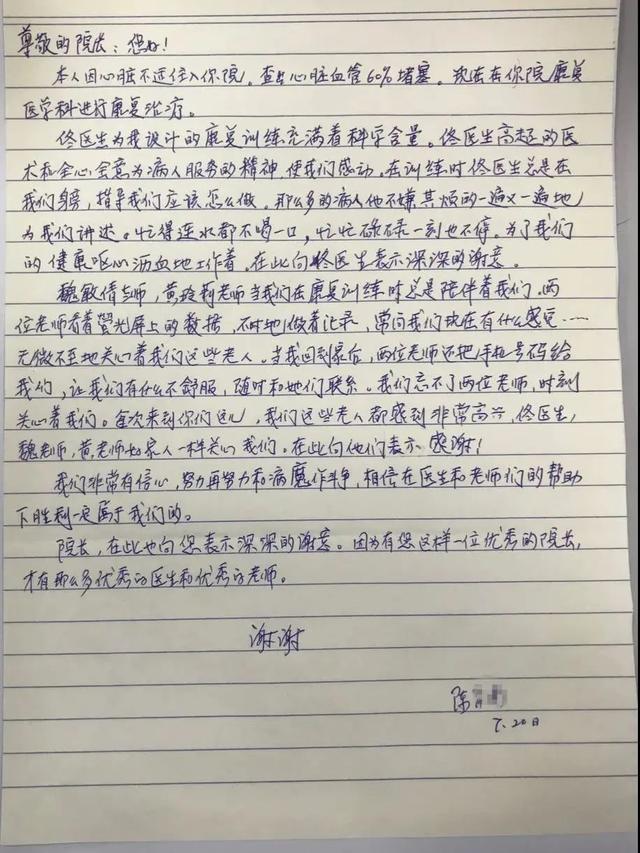 尊敬的院长：您好！
本人因心脏不适住入你院。查出心脏血管60%堵塞。现在在你院康复
医学科进行康复治疗。
佟医生为我设计的康复训练充满着科学含量。佟医生高超的医
术和全心全意为病人服务的精神，使我们感动。在训练时佟医生总是在
我们身旁，指导我们应该怎么做。那么多的病人他不嫌其烦的一遍又一遍地
为我们讲述。忙得连水都不喝一口，忙忙碌碌一刻也不停。为了我们
的健康呕心沥血地工作着。在此向佟医生表示深深的谢意。
魏敏倩老师，黄玲莉老师当我们在康复训练时总是陪伴着我们，两
位老师看着荧光屏上的数据，不时地做着记录，常问我们现在有什么感觉……
无微不至地关心着我们这些老人。当我回到家后，两位老师还把手机号码给
我们，让我们有什么不舒服，随时和她们联系。我们忘不了两位老师，时刻
关心着我们。每次来到你们这儿，我们这些老人都感到非常高兴，佟医生，
魏老师，黄老师如家人一样关心我们。在此向他们表示感谢！
我们非常有信心，努力再努力和病魔作斗争，相信在医生和老师们的帮助
下胜利一定属于我们的。
院长，在此也向您表示深深的谢意。因为有您这样一位优秀的院长，
才有那么多优秀的医生和优秀的老师。
谢谢
陈
7.20日